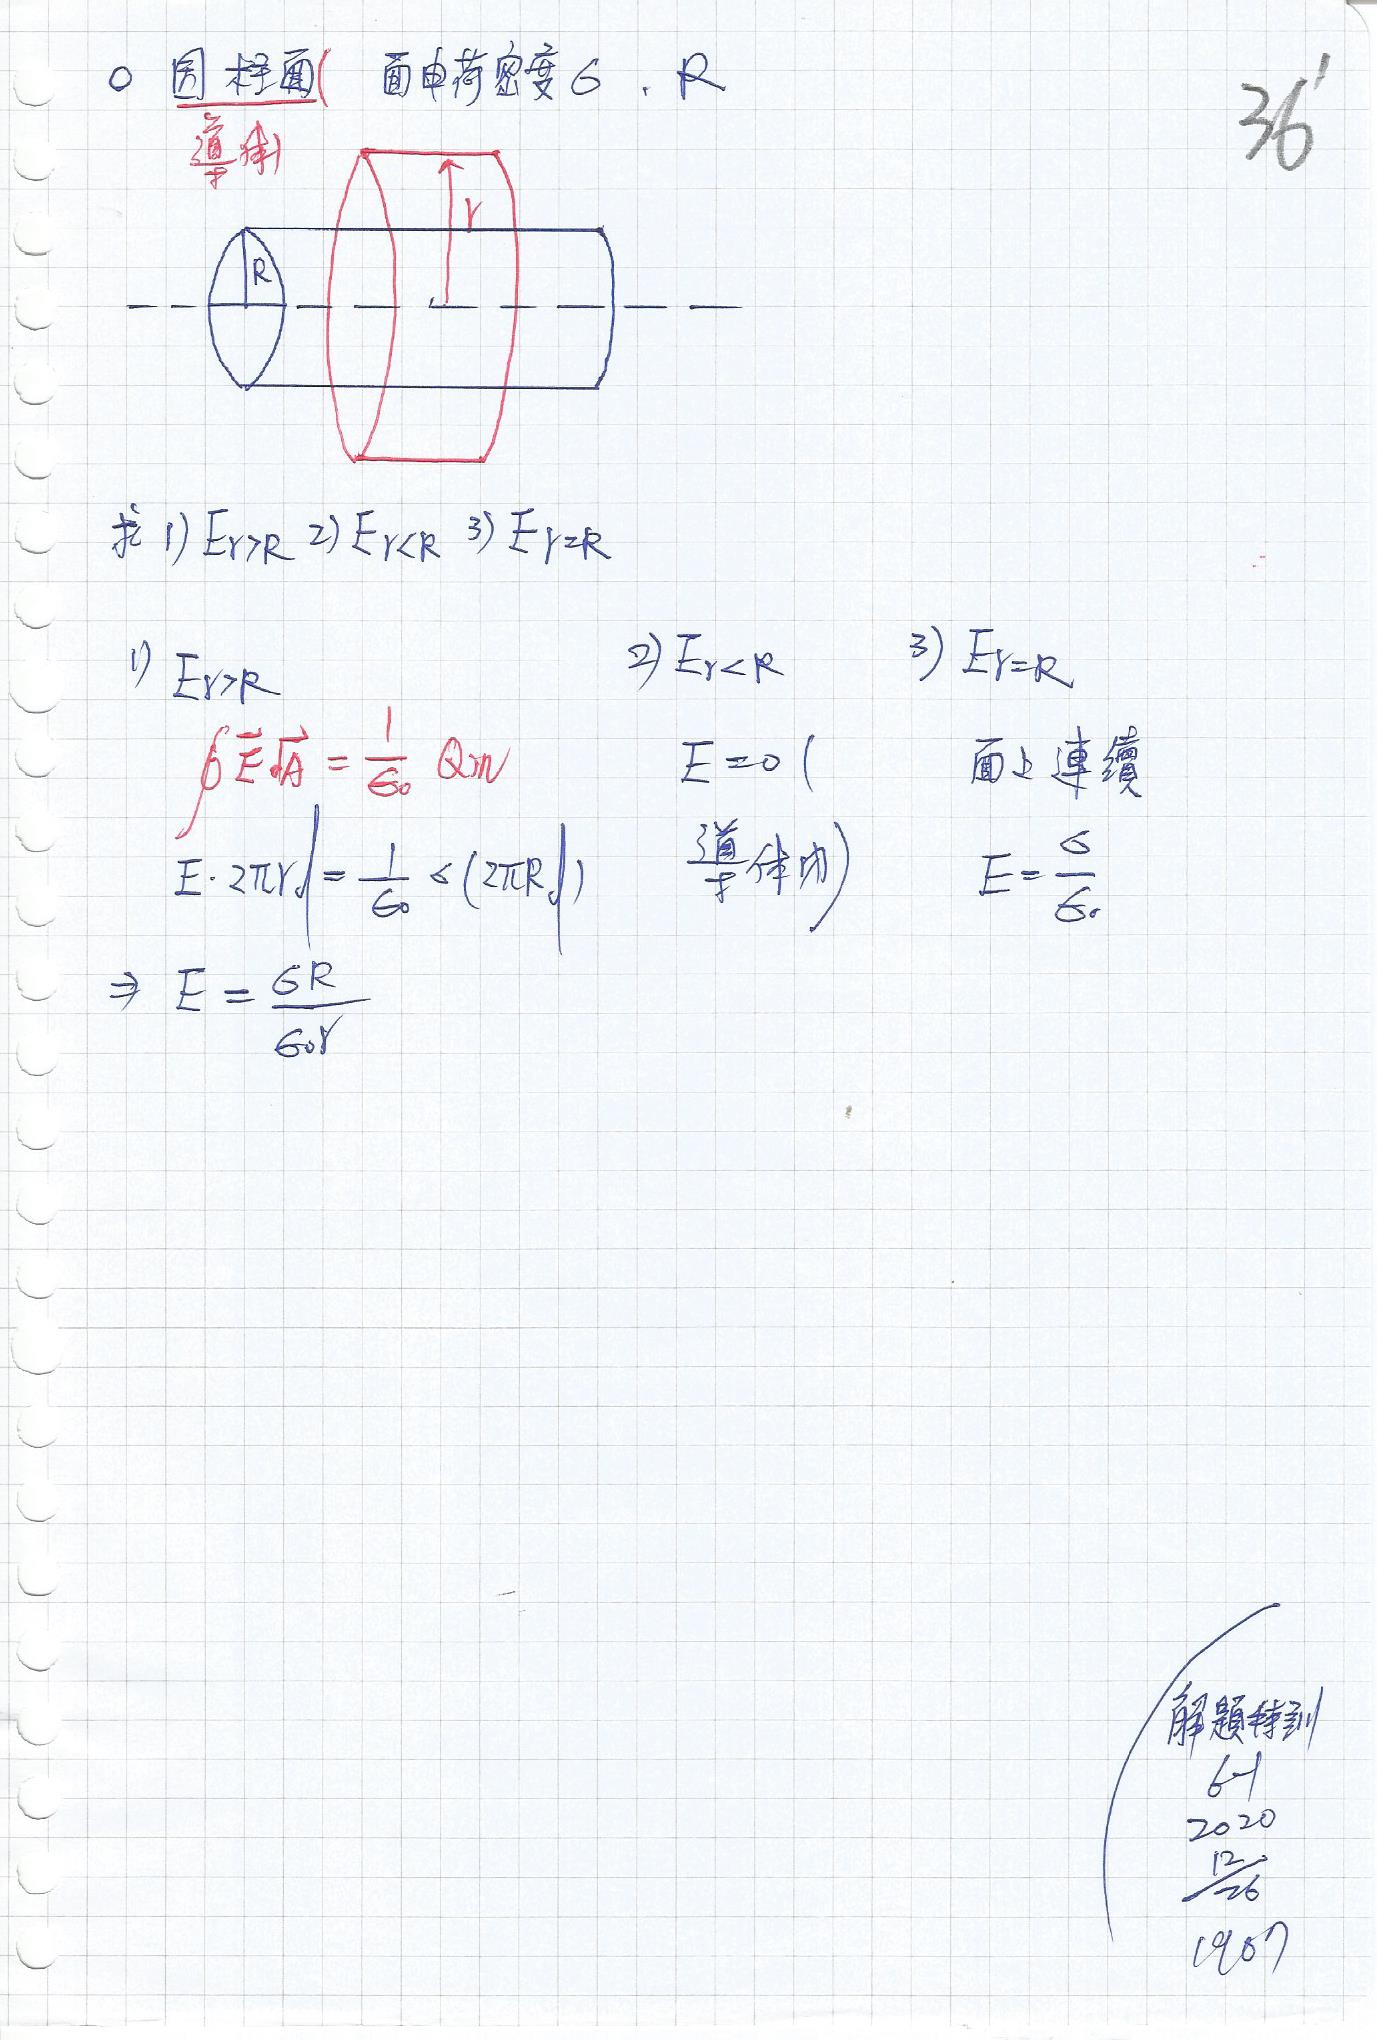 ○ 圓柱面( 面电荷密度σ . R
導体)
36'
r
R
求 1) Er>R 2) Er<R 3) Er=R
1) Er>R
∮E⃗·dA⃗ = 1/ε₀ Qin
E·2πrl = 1/ε₀ σ(2πRl)
⇒ E = σR/ε₀r
2) Er<R
E=0 (
導体内)
3) Er=R
面上連續
E = σ/ε₀
解題特訓
6-1
2020
12/26
1907